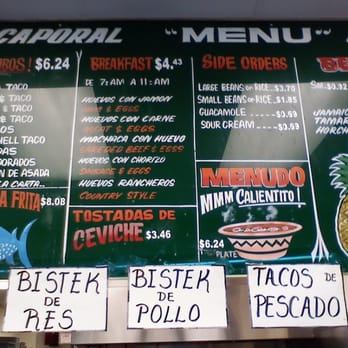 CAPORAL "MENU"
BOS! $6.24
TACO
& TACO
& TACO
OS
HELL TACO
DAS
DORADOS
N DE ASADA
LA CARTA..
A FRITA $8.08
BREAKFAST $4.43
DE 7:AM A 11:AM
HUEVOS CON JAMON
& EGGS
HUEVOS CON CARNE
MEAT & EGGS
MACHACA CON HUEVO
SHREDED BEEF & EGGS
HUEVOS CON CHORIZO
SAUSAGE & EGGS
HUEVOS RANCHEROS
COUNTRY STYLE
TOSTADAS DE
CEVICHE $3.46
SIDE ORDERS
LARGE BEANS OR RICE..$3.70
SMALL BEANS OR RICE..$1.85
GUACAMOLE $3.69
SOUR CREAM $3.69
MENUDO
MMM CALIENTITO!
$6.24
PLATE
BE
JAMAI
TAMAR
HORCH
BISTEK
DE
RES
BISTEK
DE
POLLO
TACOS DE
PESCADO